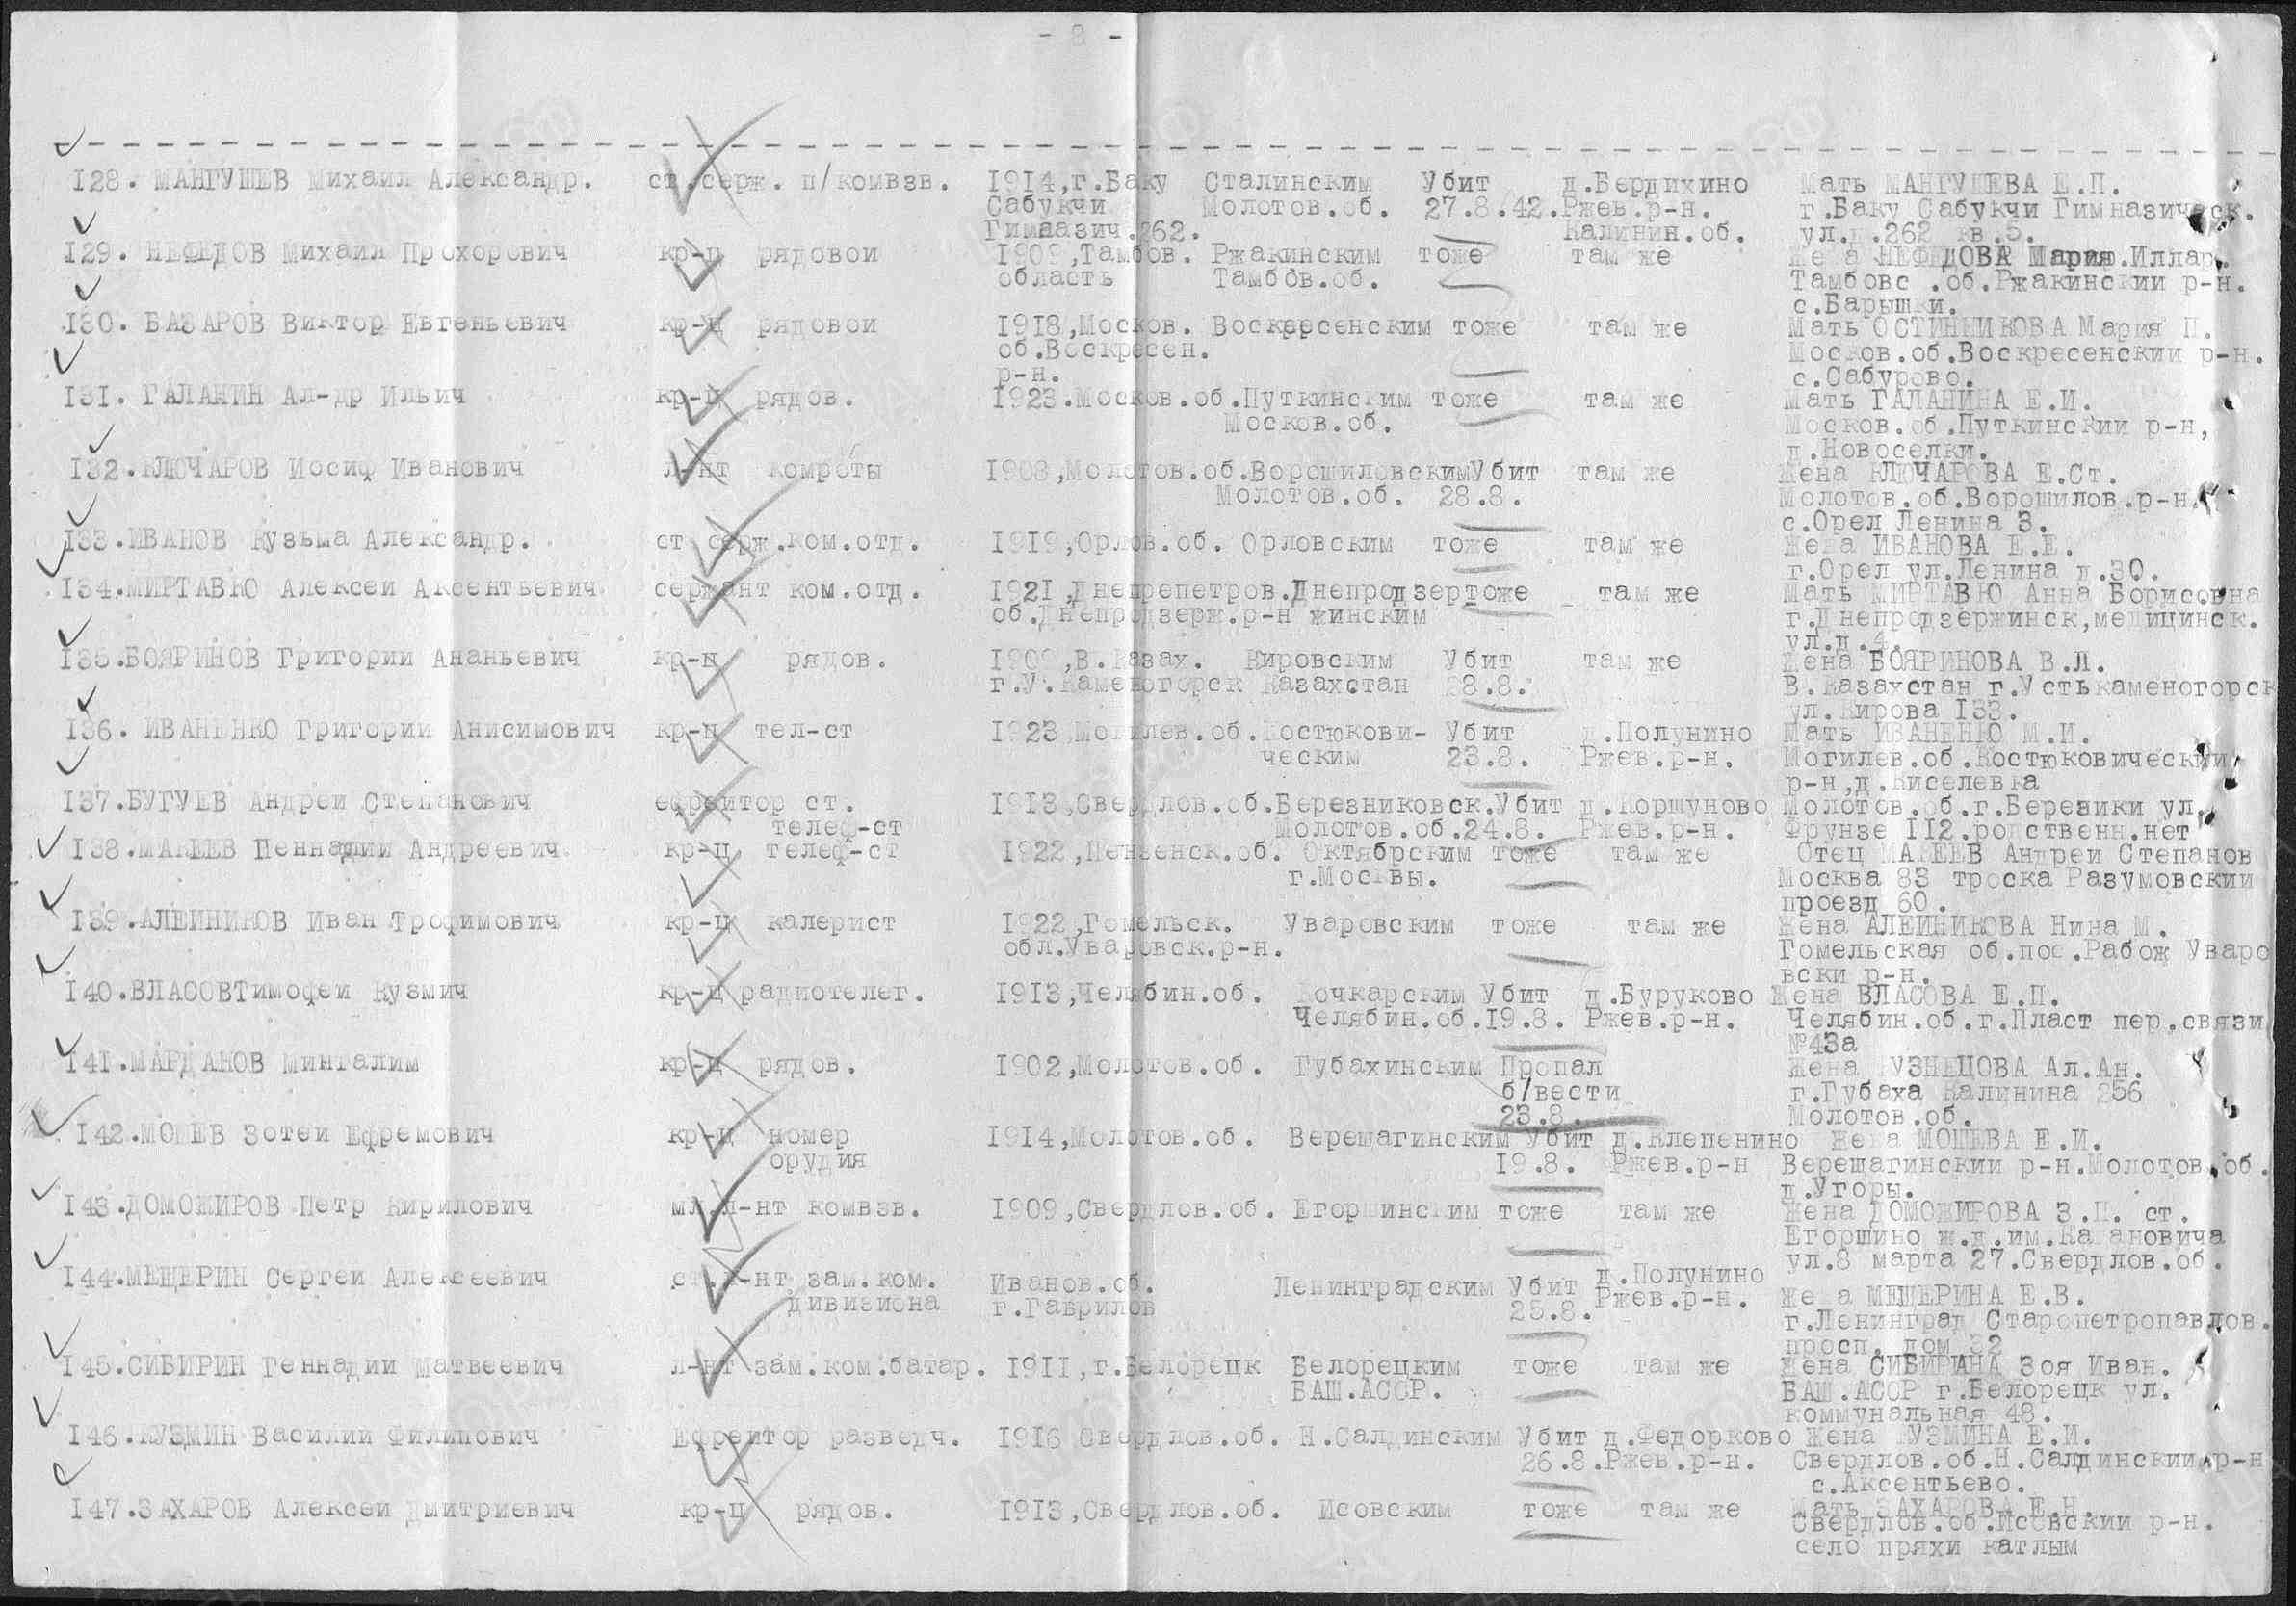 - 8 -
128. МАНГУШЕВ Михаил Александр. ст.серж. п/комвзв. 1914,г.Баку Сталинским Убит д.Бердихино Мать МАНГУШЕВА Е.П.
Сабукчи Молотов.об. 27.8.42.Ржев.р-н. г.Баку Сабукчи Гимназическ.
Гимназич.262. Калинин.об. ул.д.262 кв.5.
129. НЕФЕДОВ Михаил Прохорович кр-ц рядовой 1909,Тамбов. Ржакинским тоже там же Жена НЕФЕДОВА Мария.Иллар.
область Тамбов.об. Тамбовс .об.Ржакинский р-н.
с.Барышки.
130. БАЗАРОВ Виктор Евгеньевич кр-ц рядовой 1918,Москов. Воскресенским тоже там же Мать ОСТИННИКОВА Мария П.
об.Воскресен. Москов.об.Воскресенский р-н.
р-н. с.Сабурово.
131. ГАЛАНИН Ал-др Ильич кр-ц рядов. 1923.Москов.об.Путкинским тоже там же Мать ГАЛАНИНА Е.И.
Москов.об. Москов.об.Путкинский р-н,
д.Новоселки.
132.КЛЮЧАРОВ Иосиф Иванович л-нт комроты 1908,Молотов.об.ВорошиловскимУбит там же Жена КЛЮЧАРОВА Е.Ст.
Молотов.об. 28.8. Молотов.об.Ворошилов.р-н.
с.Орел Ленина 3.
133.ИВАНОВ Кузьма Александр. ст серж.ком.отд. 1919,Орлов.об. Орловским тоже там же Жена ИВАНОВА Е.Е.
г.Орел ул.Ленина д.30.
134.МИРТАВЮ Алексей Аксентьевич сержант ком.отд. 1921,Днепрепетров.Днепродзертоже там же Мать МИРТАВЮ Анна Борисовна
об.Днепродзерж.р-н жинским г.Днепродзержинск,медицинск.
ул.д.4.
135.БОЯРИНОВ Григории Ананьевич кр-ц рядов. 1909,В.Казах. Кировским Убит там же Жена БОЯРИНОВА В.Л.
г.У.Каменогорск Казахстан 28.8. В.Казахстан г.Устькаменогорск
ул.Кирова 133.
136. ИВАНЕНКО Григории Анисимович кр-ц тел-ст 1923,Могилев.об.Костюкови- Убит д.Полунино Мать ИВАНЕНКО М.И.
ческим 23.8. Ржев.р-н. Могилев.об.Костюковический
р-н,д.Киселевка
137.БУГУЕВ Андрей Степанович ефрейтор ст. 1913,Свердлов.об.Березниковск.Убит д.Коршуново Молотов.об.г.Березики ул.
телеф-ст Молотов.об.24.8. Ржев.р-н. Фрунзе 112.родственн.нет
138.МАКЕЕВ Геннадии Андреевич кр-ц телеф-ст 1922,Пензенск.об. Октябрским тоже там же Отец МАКЕЕВ Андреи Степанов
г.Москвы. Москва 83 троска Разумовский
проезд 60.
139.АЛЕЙНИКОВ Иван Трофимович кр-ц калерист 1922,Гомельск. Уваровским тоже там же Жена АЛЕЙНИКОВА Нина М.
обл.Уваровск.р-н. Гомельская об.пос.Рабож Уваро
вски р-н.
140.ВЛАСОВТимофей Кузмич кр-ц радиотелег. 1913,Челябин.об. Кочкарским Убит д.Буруково Жена ВЛАСОВА Е.П.
Челябин.об.19.8. Ржев.р-н. Челябин.об.г.Пласт пер.связи
№43а
141.МАРДАНОВ Мингалим кр-ц рядов. 1902,Молотов.об. Губахинским Пропал Жена КУЗНЕЦОВА Ал.Ан.
б/вести г.Губаха Калинина 256
23.8. Молотов.об.
142.МОШЕВ Зотей Ефремович кр-ц номер 1914,Молотов.об. Верещагинским Убит д.Клепенино Жена МОШЕВА Е.И.
орудия 19.8. Ржев.р-н Верещагинский р-н.Молотов.об.
д.Угоры.
143.ДОМОЖИРОВ Петр Кирилович мл.л-нт комвзв. 1909,Свердлов.об. Егоршинским тоже там же Жена ДОМОЖИРОВА З.П. ст.
Егоршино ж.д.им.Кагановича
ул.8 марта 27.Свердлов.об.
144.МЕЩЕРИН Сергей Алексеевич ст.л-нт зам.ком. Иванов.об. Ленинградским Убит д.Полунино
дивизиона г.Гаврилов 25.8. Ржев.р-н. Жена МЕЩЕРИНА Е.В.
г.Ленинград Старопетропавлов.
просп. дом 32
145.СИБИРИН Геннадии Матвеевич л-нт зам.ком.батар. 1911,г.Белорецк Белорецким тоже там же Жена СИБИРИНА Зоя Иван.
БАШ.АССР. БАШ.АССР г.Белорецк ул.
коммунальная 48.
146.КУЗМИН Василий Филипович Ефрейтор разведч. 1916 Свердлов.об. Н.Салдинским Убит д.Федорково Жена КУЗМИНА Е.И.
26.8.Ржев.р-н. Свердлов.об.Н.Салдинский р-н
с.Аксентьево.
147.ЗАХАРОВ Алексей Дмитриевич кр-ц рядов. 1913,Свердлов.об. Исовским тоже там же Мать ЗАХАРОВА Е.Н.
Свердлов.об.Исовский р-н.
село пряхи катлым